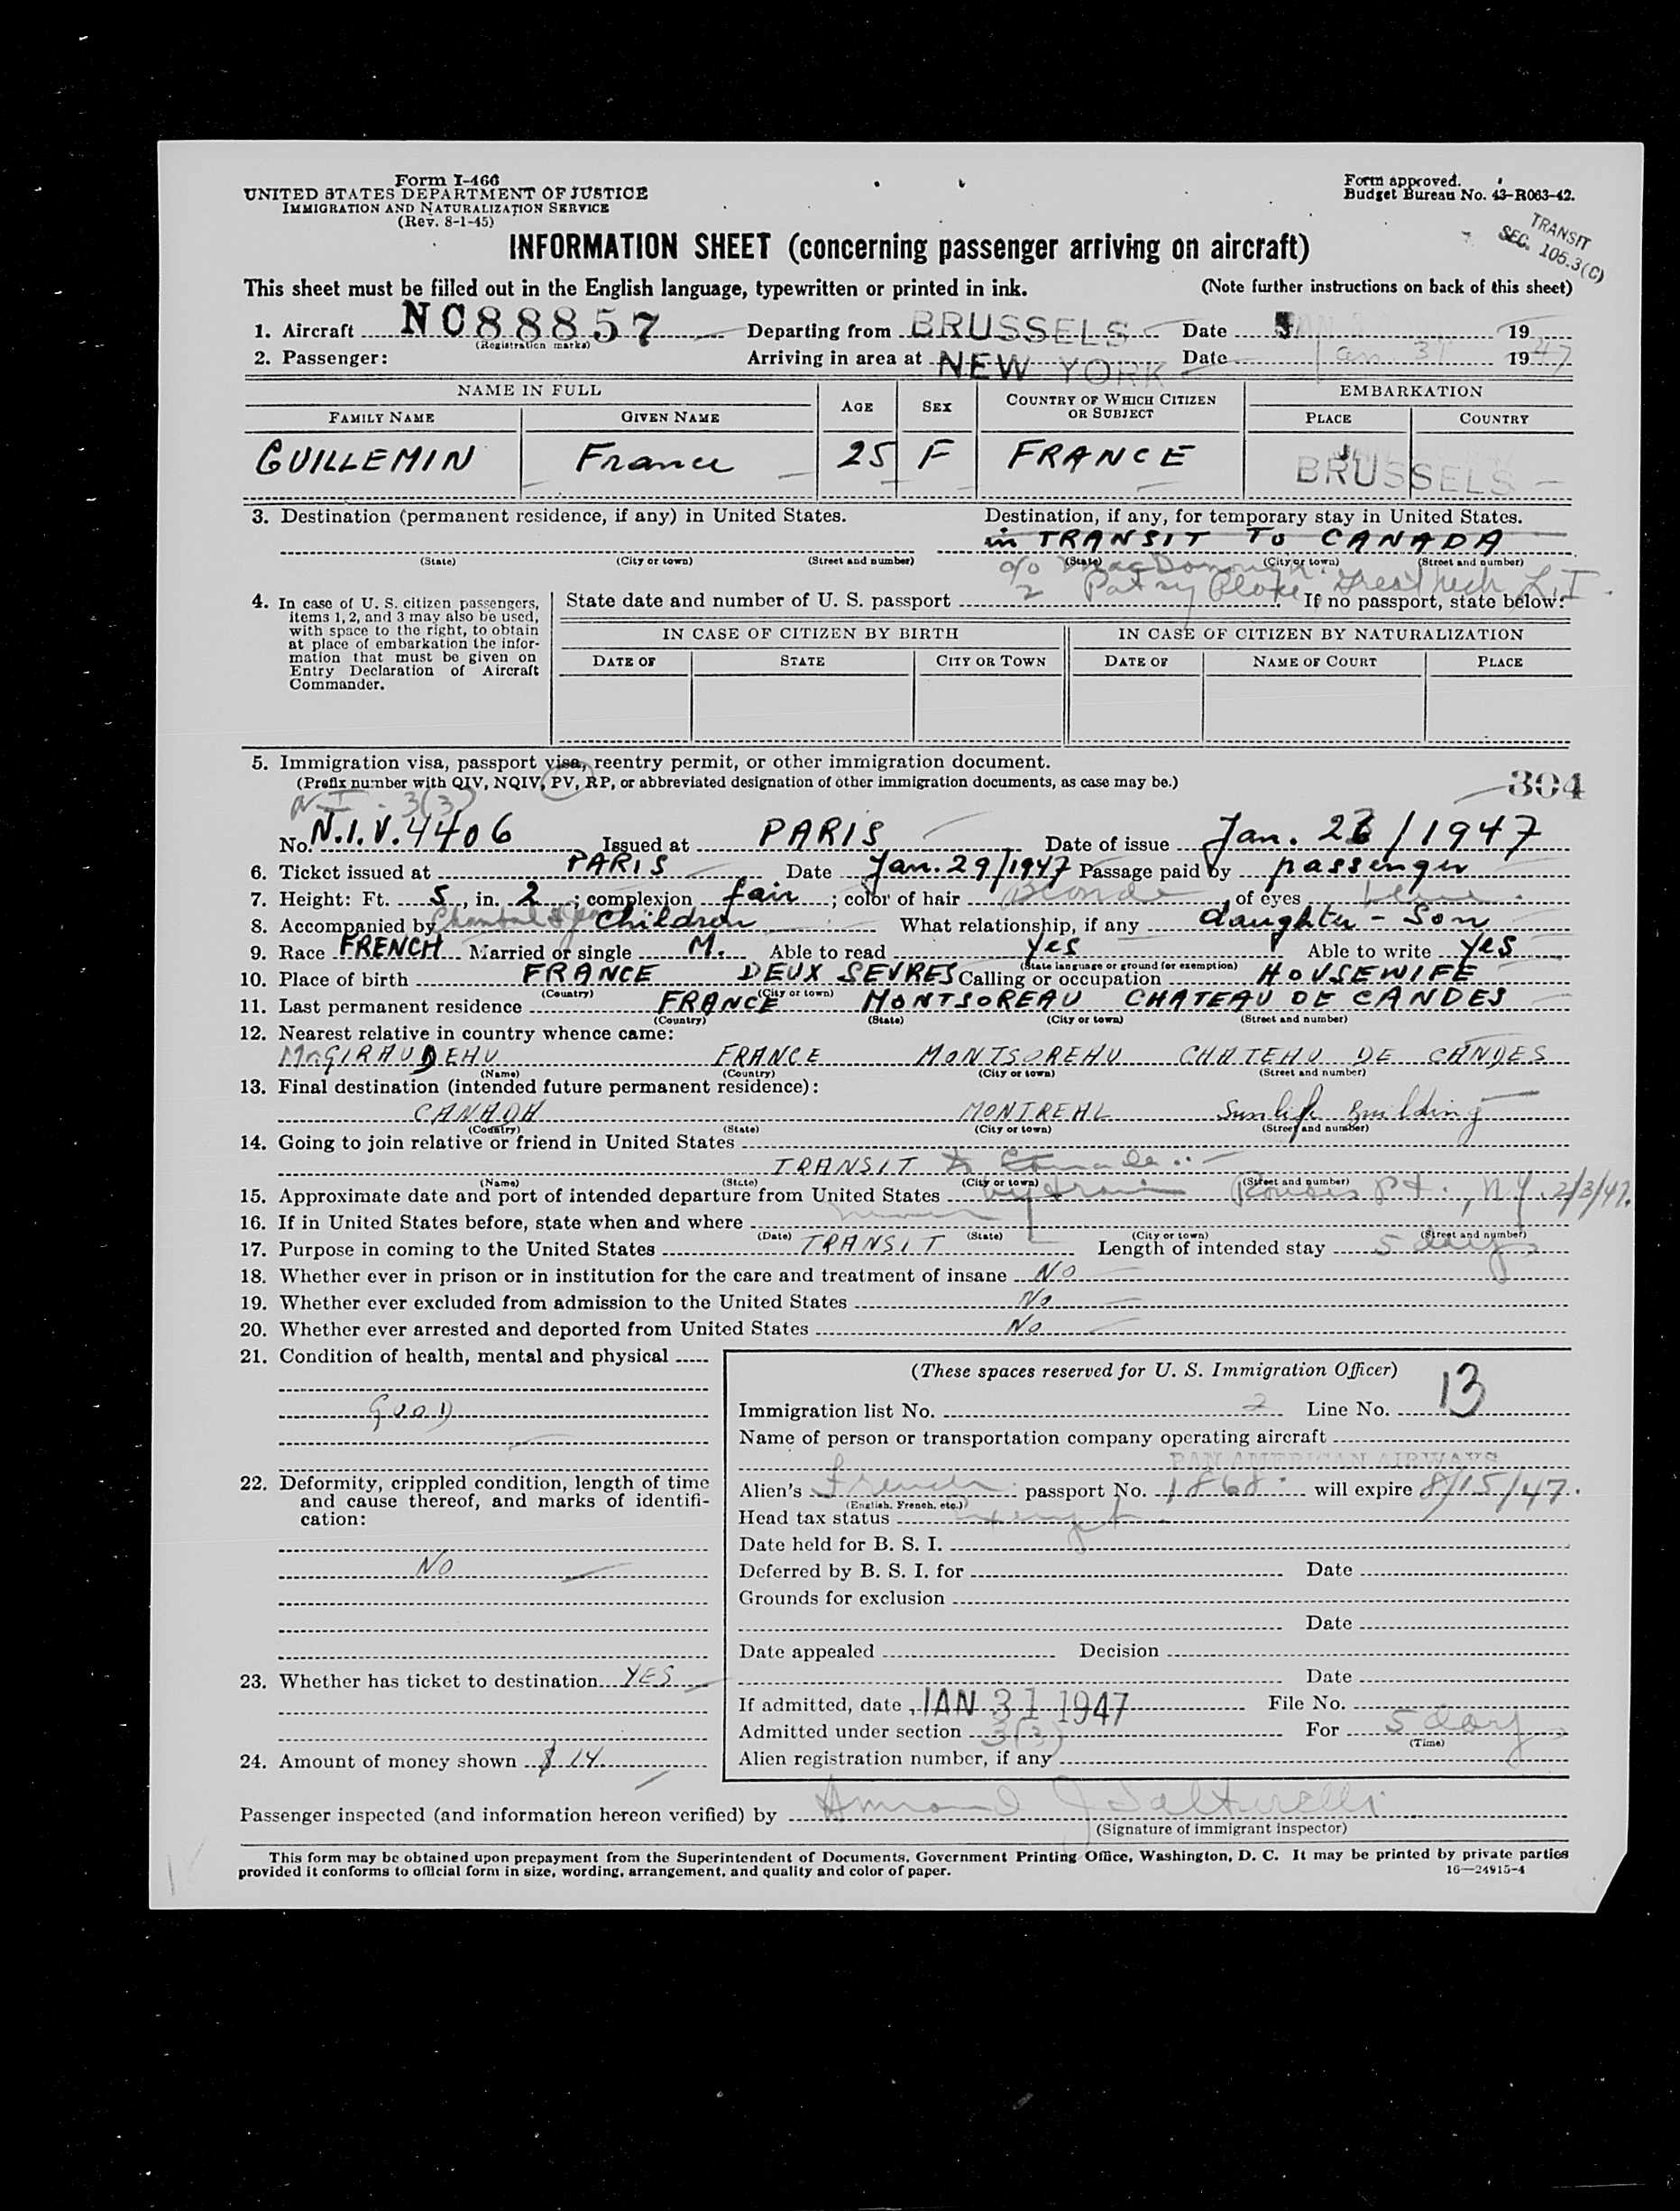 Form I-466
UNITED STATES DEPARTMENT OF JUSTICE
IMMIGRATION AND NATURALIZATION SERVICE
(Rev. 8-1-45)
Form approved.
Budget Bureau No. 43-R063-42.
TRANSIT
SEC. 105.3(C)
INFORMATION SHEET (concerning passenger arriving on aircraft)
This sheet must be filled out in the English language, typewritten or printed in ink. (Note further instructions on back of this sheet)
1. Aircraft NC88857 Departing from BRUSSELS Date 19
(Registration marks)
2. Passenger: Arriving in area at NEW YORK Date Jan 31 1947
NAME IN FULL AGE SEX COUNTRY OF WHICH CITIZEN OR SUBJECT EMBARKATION
FAMILY NAME GIVEN NAME PLACE COUNTRY
GUILLEMIN France 25 F FRANCE BRUSSELS
3. Destination (permanent residence, if any) in United States. Destination, if any, for temporary stay in United States.
in TRANSIT TO CANADA
(State) (City or town) (Street and number) (State) (City or town) (Street and number)
c/o MacDonough
2 Great Neck L.I.
4. In case of U. S. citizen passengers, items 1, 2, and 3 may also be used, with space to the right, to obtain at place of embarkation the information that must be given on Entry Declaration of Aircraft Commander.
State date and number of U. S. passport If no passport, state below:
IN CASE OF CITIZEN BY BIRTH IN CASE OF CITIZEN BY NATURALIZATION
DATE OF STATE CITY OR TOWN DATE OF NAME OF COURT PLACE
5. Immigration visa, passport visa, reentry permit, or other immigration document.
(Prefix number with QIV, NQIV, PV, RP, or abbreviated designation of other immigration documents, as case may be.)
304
3(3)
No. N.I.V. 4406 Issued at PARIS Date of issue Jan. 28/1947
6. Ticket issued at PARIS Date Jan. 29/1947 Passage paid by passenger
7. Height: Ft. 5, in. 2; complexion fair; color of hair Blonde, of eyes blue.
8. Accompanied by Chantal & children What relationship, if any daughter - Son
9. Race FRENCH Married or single M. Able to read Yes Able to write Yes
(State language or ground for exemption)
10. Place of birth FRANCE DEUX SEVRES Calling or occupation HOUSEWIFE
(Country) (City or town)
11. Last permanent residence FRANCE MONTSOREAU CHATEAU DE CANDES
(Country) (State) (City or town) (Street and number)
12. Nearest relative in country whence came:
Mr GIRAUDEAU FRANCE MONTSOREAU CHATEAU DE CANDES
(Name) (Country) (City or town) (Street and number)
13. Final destination (intended future permanent residence):
CANADA MONTREAL Sunlife Building
(Country) (State) (City or town) (Street and number)
14. Going to join relative or friend in United States
TRANSIT to Canada
(Name) (State) (City or town) (Street and number)
15. Approximate date and port of intended departure from United States by train Rouses Pt., N.Y. 2/3/47.
16. If in United States before, state when and where never
(Date) (State) (City or town) (Street and number)
17. Purpose in coming to the United States TRANSIT Length of intended stay 5 days
18. Whether ever in prison or in institution for the care and treatment of insane No
19. Whether ever excluded from admission to the United States No
20. Whether ever arrested and deported from United States No
21. Condition of health, mental and physical
GOOD
22. Deformity, crippled condition, length of time and cause thereof, and marks of identification:
NO
23. Whether has ticket to destination YES
24. Amount of money shown $ 14
(These spaces reserved for U. S. Immigration Officer)
Immigration list No. 2 Line No. 13
Name of person or transportation company operating aircraft
PAN AMERICAN AIRWAYS
Alien's French passport No. 1868 will expire 8/15/47.
(English, French, etc.)
Head tax status exempt
Date held for B. S. I.
Deferred by B. S. I. for Date
Grounds for exclusion
Date
Date appealed Decision
Date
If admitted, date JAN 31 1947 File No.
Admitted under section 3(3) For 5 days
(Time)
Alien registration number, if any
Passenger inspected (and information hereon verified) by
(Signature of immigrant inspector)
This form may be obtained upon prepayment from the Superintendent of Documents, Government Printing Office, Washington, D. C. It may be printed by private parties
provided it conforms to official form in size, wording, arrangement, and quality and color of paper. 16—24915-4